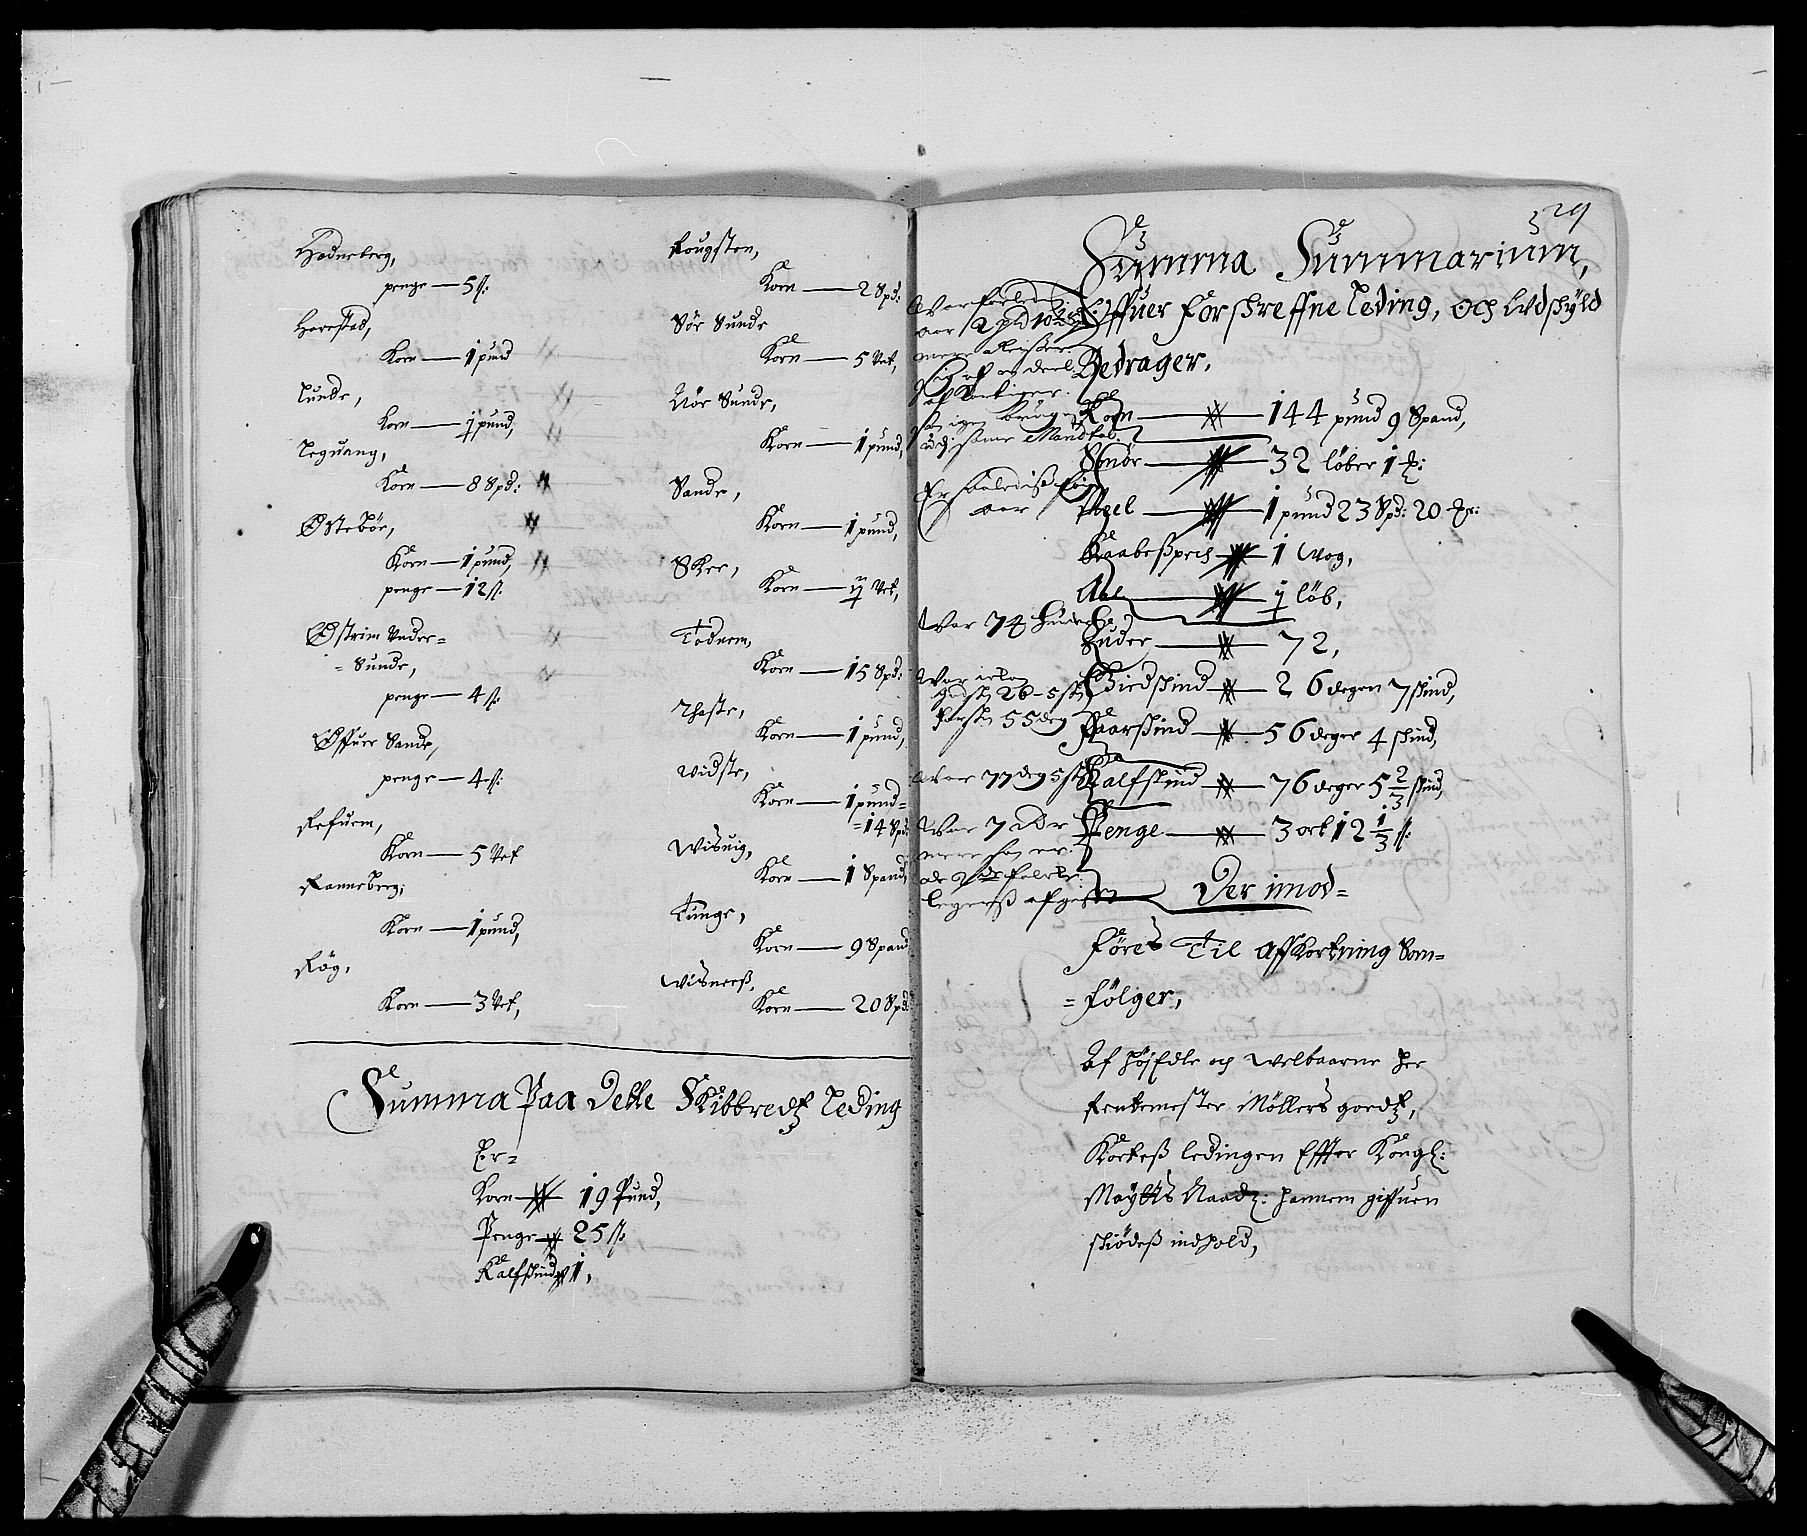 Haduberg,
penge — 5 ß:
Harestad,
Korn — 1 pund
Lunde,
Korn — j pund,
Leguang,
Korn — 8 Spd:
Østebør,
Korn — 1 pund,
penge — 12 ß:
Østrim Under=
=Sunde,
penge — 4 ß:
Øffuer Sande,
penge — 4 ß:
Refuem,
Korn — 5 Vet
Ranneberg,
Korn — 1 pund,
Røg,
Korn — 3 Vet,
Rougsten,
Korn — 2 Spd:
Sør Sunde
Korn — 5 Vet,
Nør Sunde,
Korn — 1 pund,
Sande,
Korn — 1 pund,
Skee,
Korn — ij Vet,
Todnem,
Korn — 15 Spd:
Thaste,
Korn — 1 pund,
Vidste,
Korn — 1 pund=
=14 Spd:
Wisuig,
Korn — 1 Spand,
Tunge,
Korn — 9 Spand
Wisneeß,
Korn — 20 Spd:
Summa Paa Dette Skibbredtz Leding
Er=
Korn — 19 Pund,
Penge — 25 ß:
Kalfskind 1,
29
Summa Summarium,
Offuer forschreffne Leding, och Landskyld
Bedrager,
Korn — 144 pund 9 Spand,
Smør — 32 løber 1
Meel — 1 pund 23 Spd: 20
Raabeßpech — 1 Wog,
Aal — j løb,
Huder — 72,
Giedskind — 26 deger 7 skind,
Faarskind — 56 deger 4 skind,
Kalfskind — 76 deger 5 2/3 skind,
Penge — 3 ort 12 1/3 ß
War 74 huder
War
26 - 5 sk
55 deg
War 77 deg 5 sk
War 7
Der imod=
Føres Til Affkortning Som=
=følger,
Af Højedle och Welbaarne Her
Rentemester Møllers goedtz,
Korteß ledingen Effter Kongl:
Maytts Naadl: hannem giffuen
skiødeß indhold,